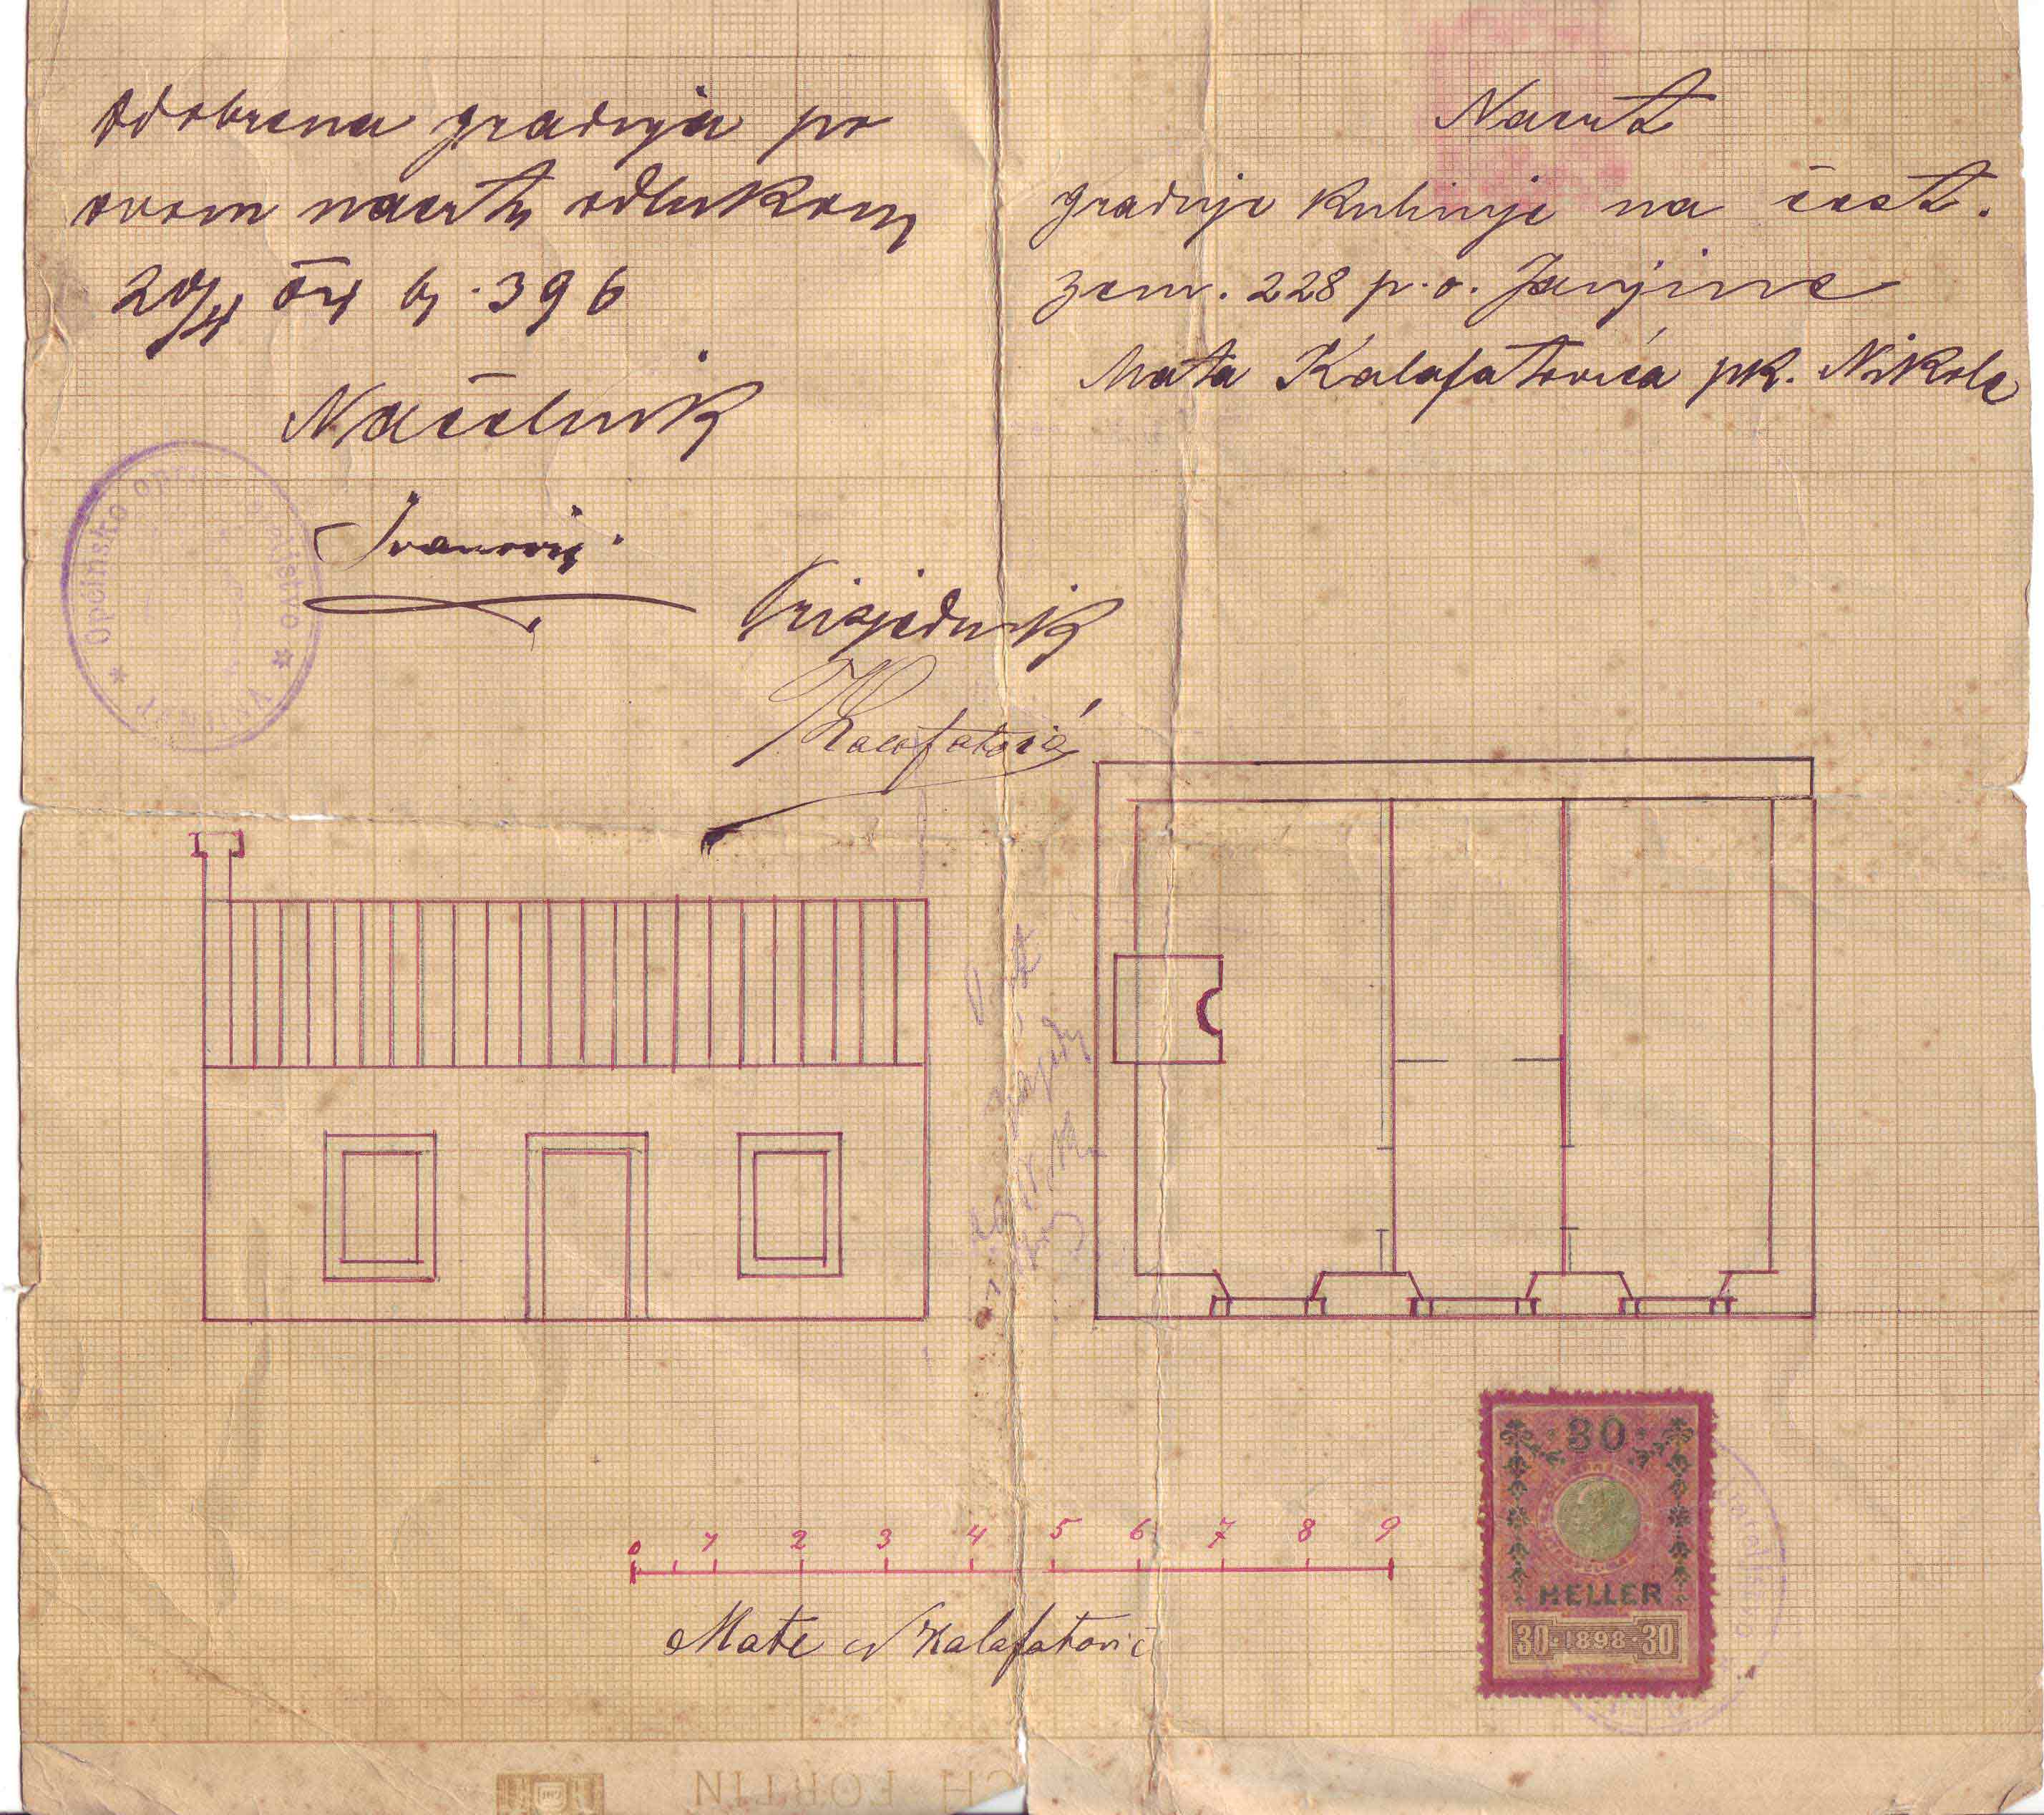 Odobrena gradnja po
ovom nacrtu odlukom
br. 396
Načelnik
Ivanović
Prisjednik
Kalafatović
Općinsko upraviteljstvo
JANJINA
Nacrt
gradnje kuhinje na čest.
zem. 228 p.o. Janjine
Mata Kalafatovića pk. Nikole
0 1 2 3 4 5 6 7 8 9
Mate Kalafatović
30
HELLER
30 1898 30